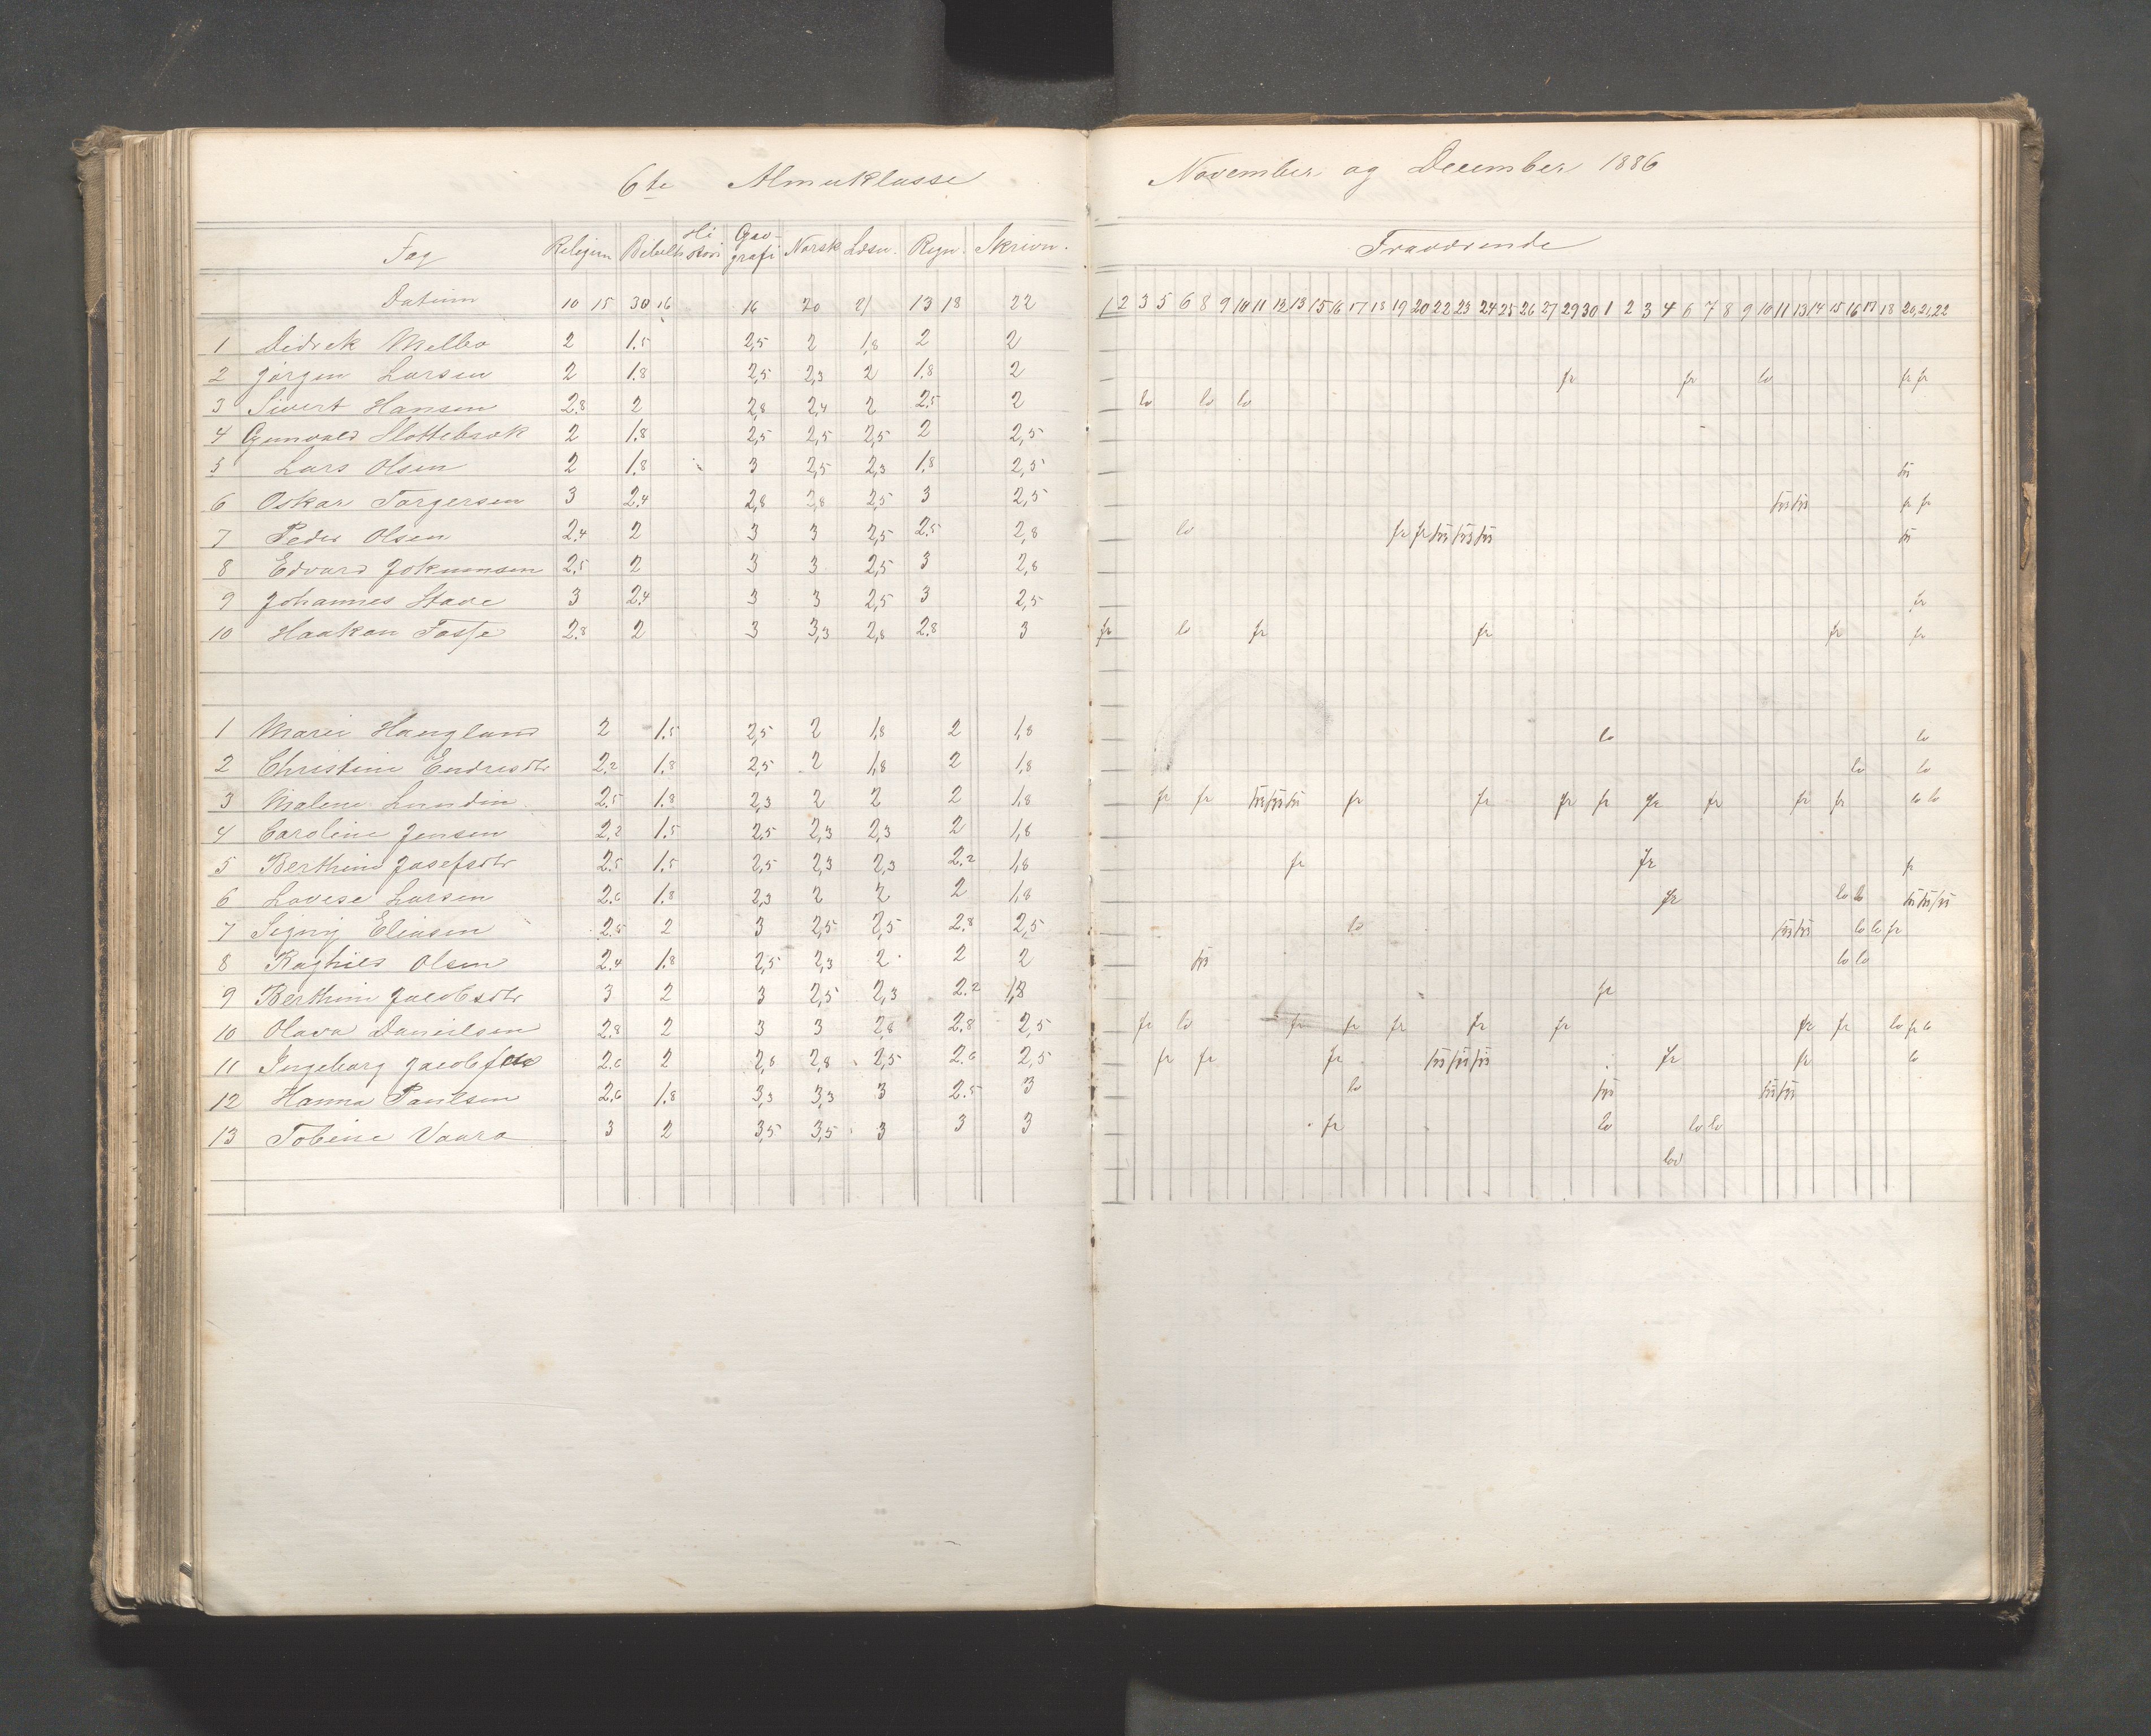 6te Almueklasse
Fag Religion Bibelh Hi storie Geo-grafi Norsk Læsn. Regn. Skrivn.
Datum 10 15 30 16 16 20 21 13 18 22
1 Didrek Melbo 2 1.5 2,5 2 1,8 2 2
2 Jørgen Larsen 2 1.8 2,5 2,3 2 1.8 2
3 Sivert Hansen 2.8 2 2,8 2,4 2 2.5 2
4 Gunvald Slottebrok 2 1.8 2,5 2,5 2,5 2 2,5
5 Lars Olsen 2 1.8 3 2,5 2,3 1.8 2,5
6 Oskar Torgersen 3 2.4 2,8 2,8 2,5 3 2,5
7 Peder Olsen 2.4 2 3 3 2,5 2.5 2,8
8 Edvard Jokumsen 2.5 2 3 3 2,5 3 2,8
9 Johannes Stave 3 2.4 3 3 2,5 3 2,5
10 Haakon Tosse 2.8 2 3 3,3 2,8 2.8 3
1 Marie Haugland 2 1.5 2,5 2 1,8 2 1,8
2 Christine Endresdtr 2.2 1.8 2,5 2 1,8 2 1,8
3 Malene Lundin 2.5 1.8 2,3 2 2 2 1,8
4 Caroline Jensen 2.2 1.5 2,5 2,3 2,3 2 1,8
5 Berthine Josefsdtr 2.5 1.5 2,5 2,3 2,3 2.2 1,8
6 Lovise Larsen 2.6 1.8 2,3 2 2 2 1,8
7 Signy Eliasen 2.5 2 3 2,5 2,5 2.8 2,5
8 Raghild Olsen 2.4 1.8 2,5 2,3 2 2 2
9 Berthine Jacobsdtr 3 2 3 2,5 2,3 2.2 1,8
10 Olava Danielsen 2.8 2 3 3 2,8 2.8 2,5
11 Ingeborg Jacobsen 2.6 2 2,8 2,8 2,5 2.6 2,5
12 Hanna Paulsen 2.6 1.8 3,3 3,3 3 2.5 3
13 Tobine Vaara 3 2 3,5 3,5 3 3 3
November og December 1886
Fraværende
1 2 3 5 6 8 9 10 11 12 13 15 16 17 18 19 20 22 23 24 25 26 27 29 30 1 2 3 4 6 7 8 9 10 11 13 14 15 16 17 18 20, 21, 22
fr fr lo fr fr
lo lo lo
fr fr
lo fr fr
fr
fr lo fr fr fr fr
lo lo
lo lo
fr fr fr fr fr fr fr fr fr fr lo lo
fr fr fr
fr lo lo
lo lo lo fr
lo lo
fr
fr lo fr fr fr fr fr fr fr lo fr lo
fr fr fr fr fr lo
lo
fr lo lo lo
lov